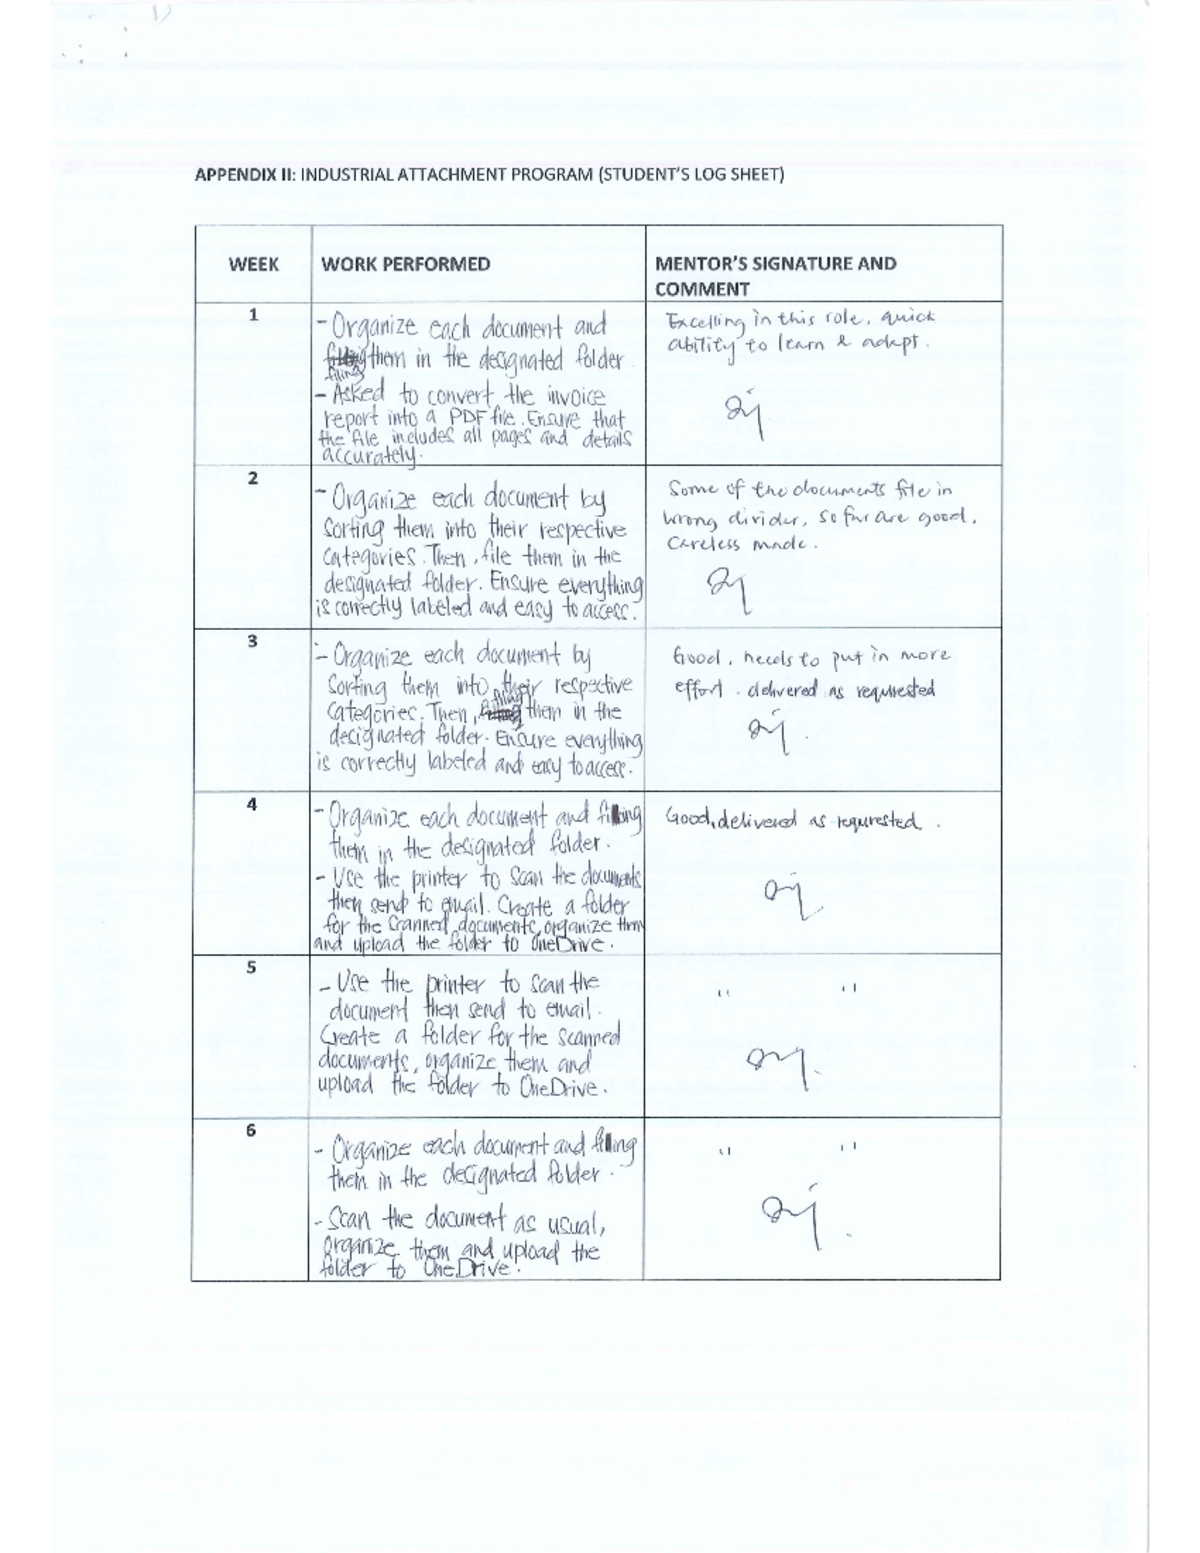 APPENDIX II: INDUSTRIAL ATTACHMENT PROGRAM (STUDENT'S LOG SHEET)
WEEK
WORK PERFORMED
MENTOR'S SIGNATURE AND
COMMENT
1
- Organize each document and
filing them in the designated folder
- Asked to convert the invoice
report into a PDF file. Ensure that
the file includes all pages and details
accurately.
Excelling in this role, quick
ability to learn & adapt.
2
- Organize each document by
sorting them into their respective
categories. Then, file them in the
designated folder. Ensure everything
is correctly labeled and easy to access.
Some of the documents file in
wrong divider, so far are good,
careless made.
3
- Organize each document by
sorting them into their respective
categories. Then, filling them in the
designated folder. Ensure everything
is correctly labeled and easy to access.
Good, needs to put in more
effort. delivered as requrested
4
- Organize each document and filling
them in the designated folder.
- Use the printer to scan the documents
then send to email. Create a folder
for the scanned documents, organize them
and upload the folder to OneDrive.
Good, delivered as requrested.
5
- Use the printer to scan the
document then send to email.
Create a folder for the scanned
documents, organize them and
upload the folder to OneDrive.
" "
6
- Organize each document and filling
them in the designated folder.
- Scan the document as usual,
organize them and upload the
folder to OneDrive.
" "